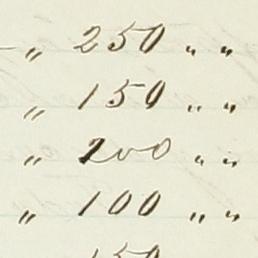 – " 250 " "
" 150 " "
" 200 " "
" 100 " "
150